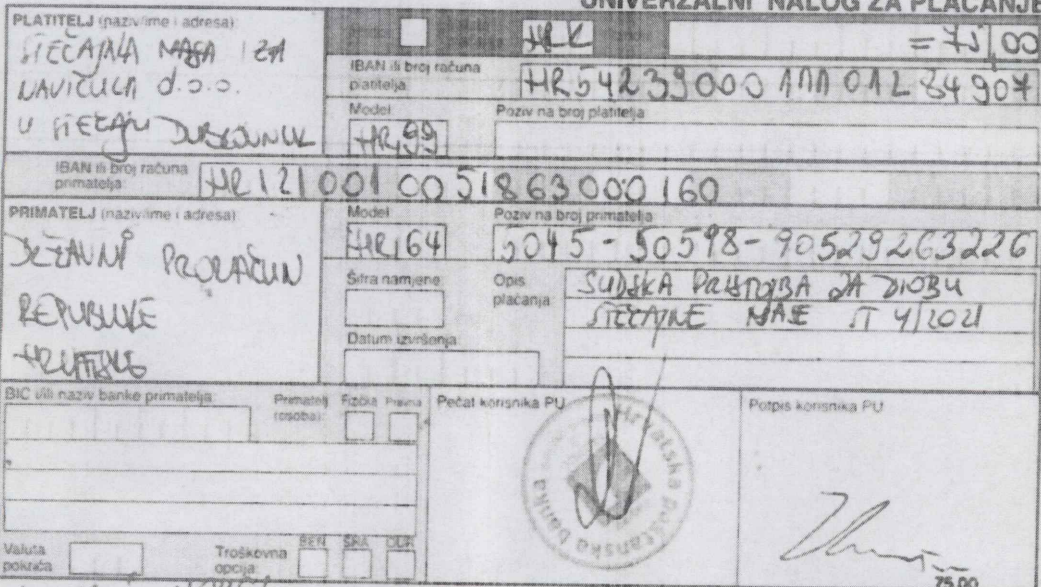 UNIVERZALNI NALOG ZA PLAĆANJE
PLATITELJ (naziv/ime i adresa):
STEČAJNA MASA IZA
NAVIČULA d.o.o.
U STEČAJU DUBROVNIK
HRK
=75,00
IBAN ili broj računa platitelja:
HR5423900011101284907
Model
HR99
Poziv na broj platitelja
IBAN ili broj računa primatelja:
HR1210010051863000160
PRIMATELJ (naziv/ime i adresa):
DRŽAVNI PRORAČUN
REPUBLIKE
HRVATSKE
Model
HR64
Poziv na broj primatelja
5045-50598-90529263226
Šifra namjene:
Opis plaćanja:
SUDSKA PRISTOJBA ZA DIOBU
STEČAJNE MASE ST 4/2021
Datum izvršenja:
BIC i/ili naziv banke primatelja:
Primatelj (osoba):
Fizička Pravna
Pečat korisnika PU
Hrvatska poštanska banka
Potpis korisnika PU
Valuta pokrića
Troškovna opcija:
BEN SHA OUR
75,00